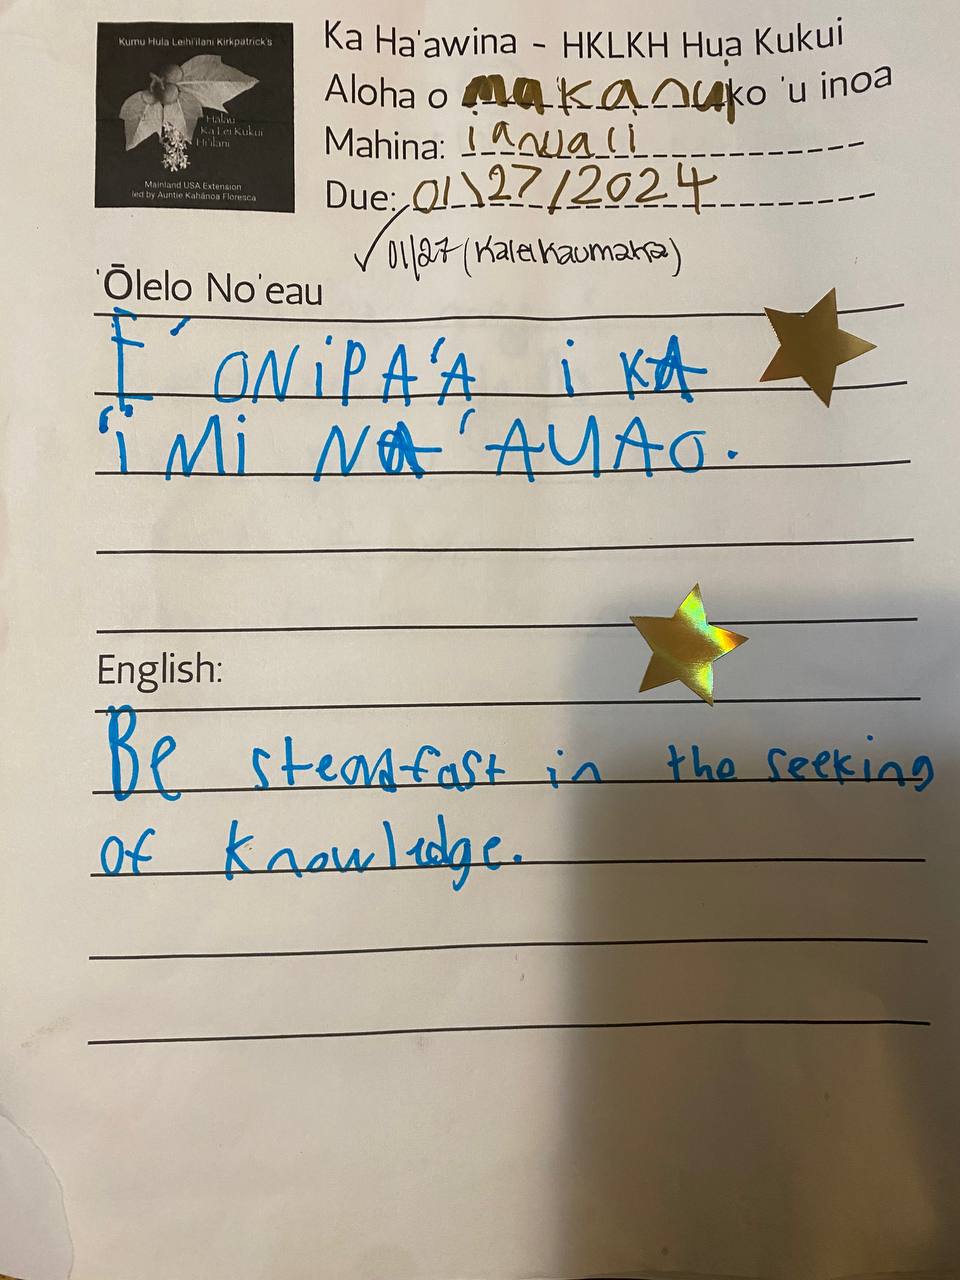 Kumu Hula Leihi'ilani Kirkpatrick's
Halau
Ka Lei Kukui
Hi'ilani
Mainland USA Extension
led by Auntie Kahanoa Floresca
Ka Ha'awina - HKLKH Hua Kukui
Aloha o makanu ko 'u inoa
Mahina: ianuali
Due: 01\27/2024
✓01/27 (Kaleikaumaka)
'Ōlelo No'eau
E ' ONiPA'A i KA
'iMi NA'AUAO.
English:
Be steadfast in the seeking
of knowledge.